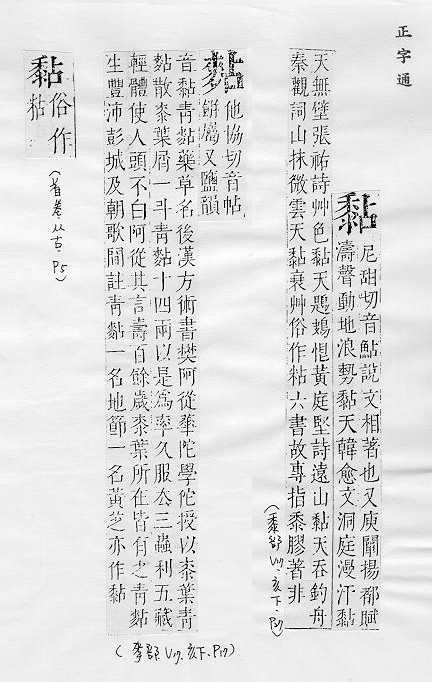 正字通
黏 尼甜切音鮎說文相著也又庾闡揚都賦
濤聲動地浪勢黏天韓愈文洞庭漫汗黏
天無壁張祐詩艸色黏天鶗鴂恨黃庭堅詩遠山黏天吞釣舟
秦觀詞山抹微雲天黏衰艸俗作粘六書故專指黍膠著非
(黍部 V17. 亥下. P)
他協切音帖
餅屬又鹽韻
音黏青黏藥草名後漢方術書樊阿從華陀學陀授以桼葉青
黏散桼葉屑一斗青黏十四兩以是為率久服去三蟲利五藏
輕體使人頭不白阿從其言壽百餘歲桼葉所在皆有之青黏
生豐沛彭城及朝歌閒註靑黏一名地節一名黃芝亦作黏
(黍部. V17. 亥下. P17)
黏 俗作
粘
(首卷从古. P5)